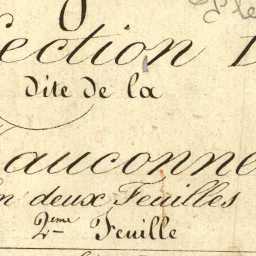 ection
dite de la
auconne
n deux Feuilles
2.eme Feuille